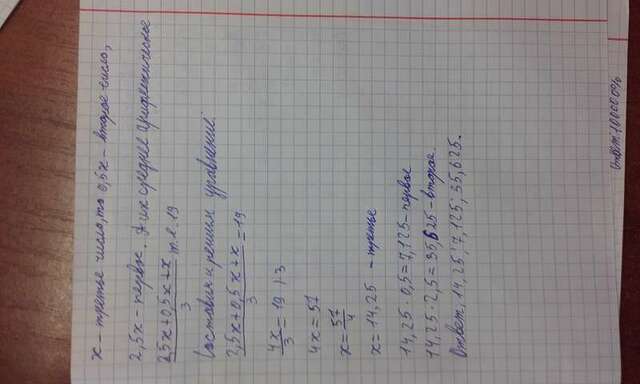 x – третье число, то 0,5x – второе число,
2,5x – первое. А их среднее арифметическое
(2,5x+0,5x+x)/3 т.е. 19
Составим и решим уравнение:
(2,5x+0,5x+x)/3 = 19
4x/3 = 19 |·3
4x = 57
x = 57/4
x = 14,25 – третье
14,25 · 0,5 = 7,125 – первое
14,25 · 2,5 = 35,625 – второе.
Ответ: 14,25; 7,125; 35,625.
Ответ: 10000%